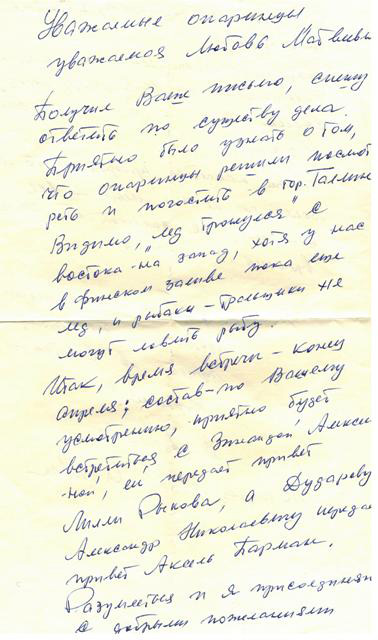 Уважаемые опаринцы
уважаемая Любовь Матвеевн
Получил Ваше письмо, спешу
ответить по существу дела.
Приятно было узнать о том,
что опаринцы решили посмот
реть и погостить в гор. Таллин
Видимо, „лед тронулся" с
востока-на запад, хотя у нас
в финском заливе пока еще
лед, и рыбаки-тральщики не
могут ловить рыбу.
Итак, время встречи - конец
апреля; состав-по Вашему
усмотрению, приятно будет
встретиться с Зинаидой Алексе
-ной, ей передает привет
Лилли Рыкова, а Дудареву
Александр Николаевичу передае
привет Аксель Парман.
Разумеется и я присоединя
с добрыми пожеланиями